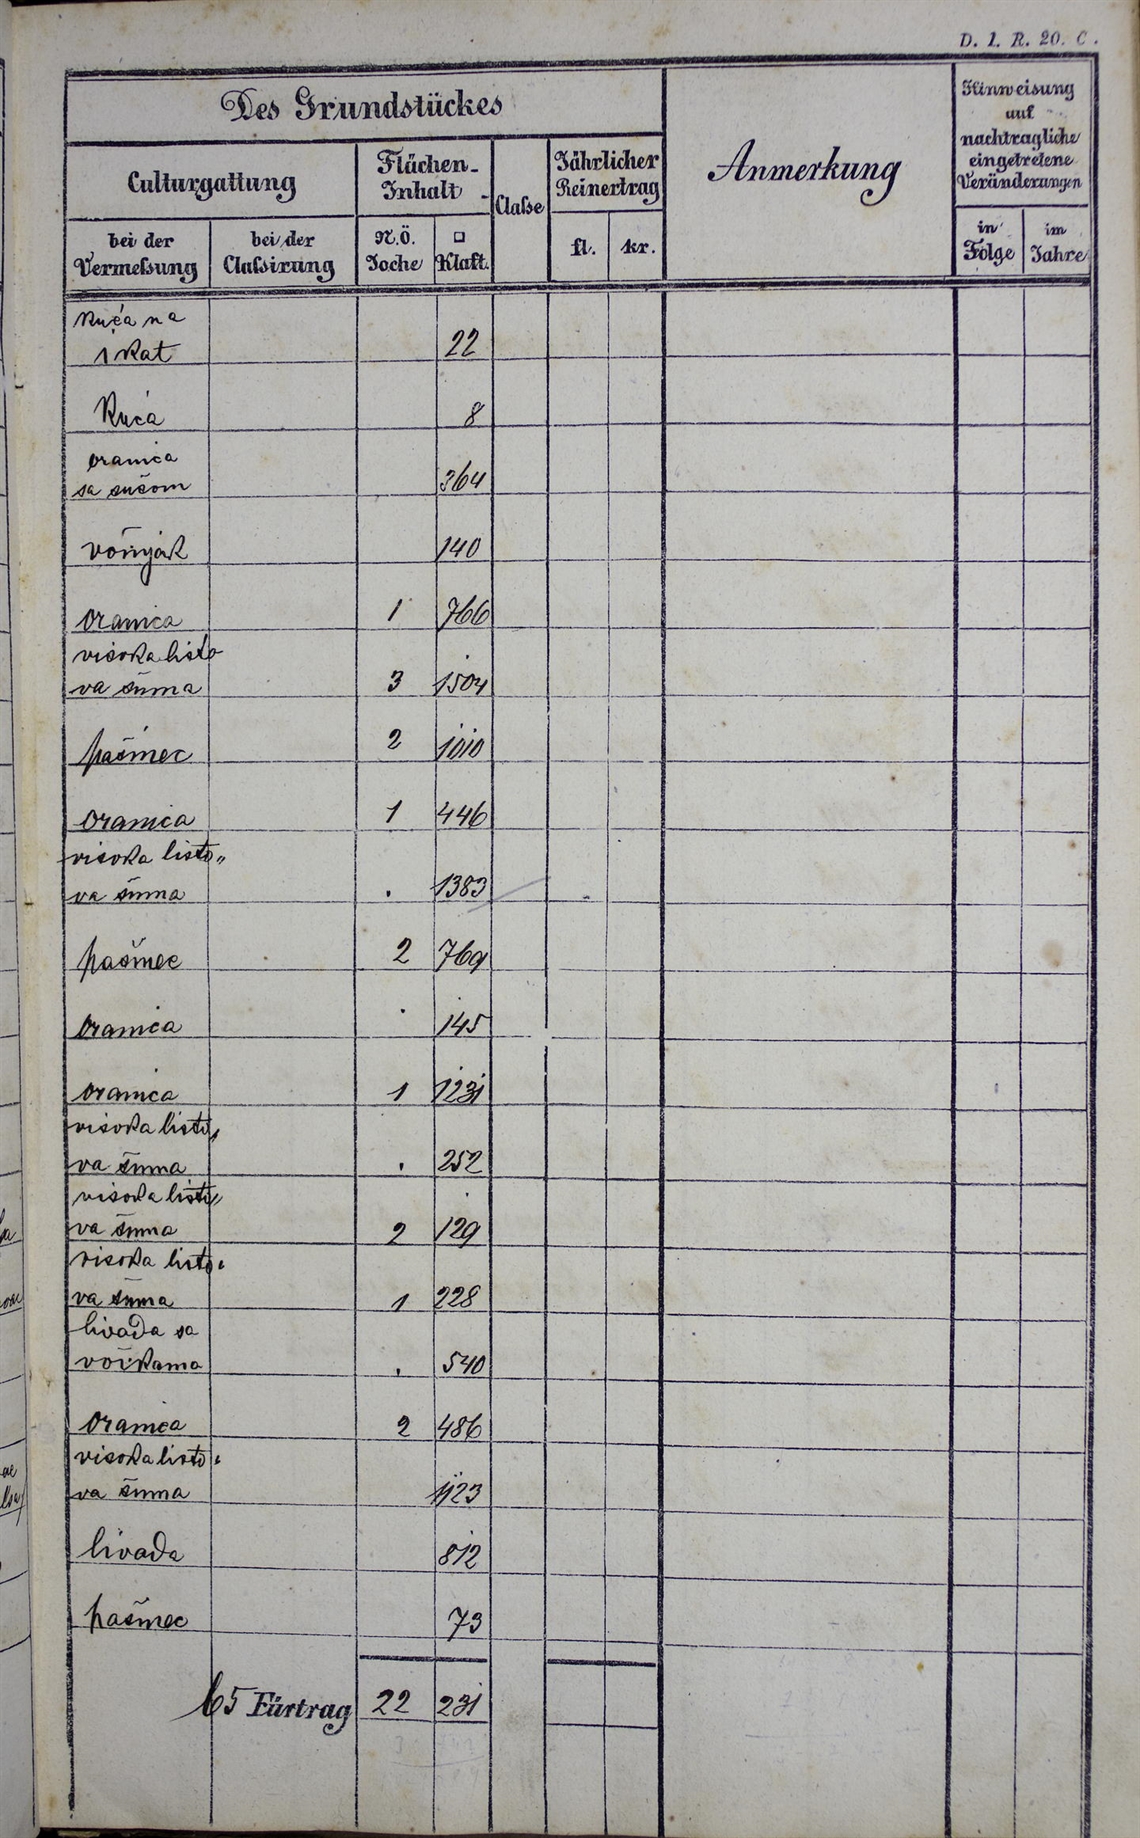 D. 1. R. 20. C.
Des Grundstückes
Culturgattung
Flächen-
Inhalt
Classe
Jährlicher
Reinertrag
Anmerkung
Hinweisung
auf
nachtragliche
eingetretene
Veränderungen
bei der
Vermessung
bei der
Classirung
N.Ö.
Joche
□
Klaft.
fl.
kr.
in
Folge
im
Jahre
Kuća na
1 kat 22
Kuća 8
oranica
sa sušom 364
voćnjak 140
oranica 1 766
visoka listo
va šuma 3 1504
pašnjec 2 1010
oranica 1 446
visoka listo„
va šuma . 1383
pašnjec 2 769
oranica . 145
oranica 1 1231
visoka listo„
va šuma . 252
visoka listo„
va šuma 2 129
visoka listo„
va šuma 1 228
livada sa
voćkama . 540
oranica 2 486
visoka listo„
va šuma 1123
livada 812
pašnjec 73
65 Fürtrag 22 231